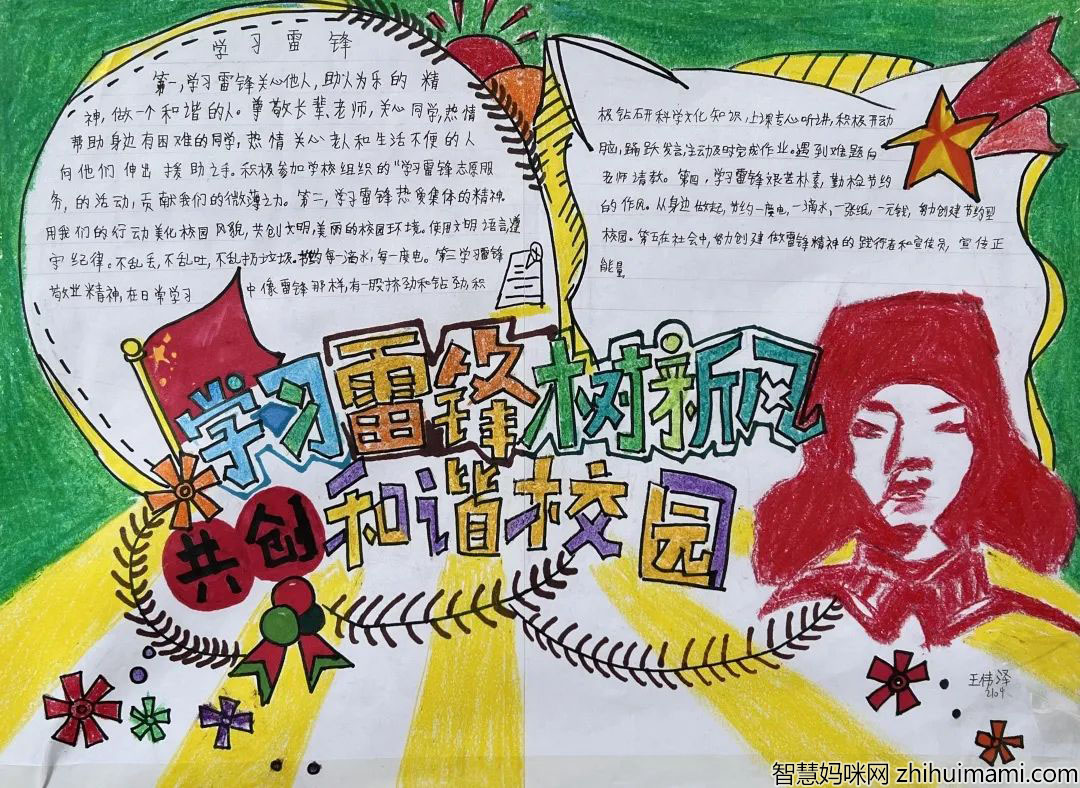 学习雷锋
第一,学习雷锋关心他人,助人为乐的精
神,做一个和谐的人。尊敬长辈、老师,关心同学,热情
帮助身边有困难的同学,热情关心老人和生活不便的人
向他们伸出援助之手。积极参加学校组织的“学习雷锋志愿服
务,的活动,贡献我们的微薄之力。第二,学习雷锋热爱集体的精神。
用我们的行动美化校园风貌,共创文明,美丽的校园环境。使用文明语言,遵
守纪律。不乱丢,不乱吐,不乱扔垃圾。节约每一滴水,每一度电。第三学习雷锋
敬业精神,在日常学习中像雷锋那样,有一股挤劲和钻劲,积
极钻研科学文化知识,上课专心听讲,积极开动
脑,踊跃发言,主动及时完成作业。遇到难题向
老师请教。第四,学习雷锋艰苦朴素,勤俭节约
的作风。从身边做起,节约一度电,一滴水,一张纸,一元钱,努力创建节约型
校园。第五在社会中,努力创建做雷锋精神的践行者和宣传员,宣传正
能量
学习雷锋树新风
共创和谐校园
王伟泽
2104
智慧妈咪网 zhihuimami.com